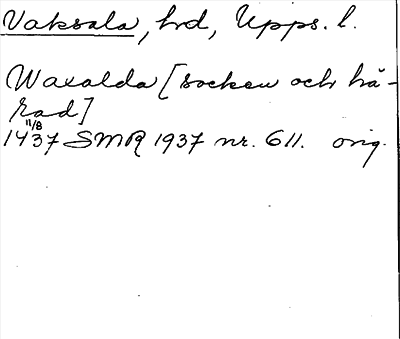 Vaksala, hrd, Upps. l.
Waxalda [socken och hä-
rad]
11/8
1437 SMR 1937 nr. 611. orig.